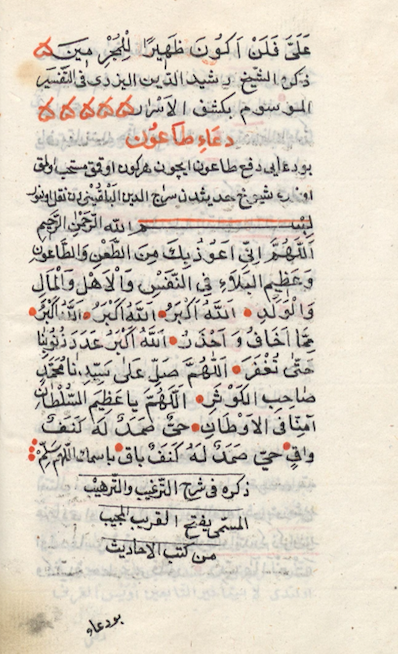 عَلَيَّ فَلَنْ اَكُونَ ظَهِيرًا لِلْمُجْرِمِينَ
ذكره الشيخ رشيد الدين اليزدى فى التفسير
الموسوم بكشف الاسرار
دعاءِ طاعون
بودعايى دفع طاعون ايچون هركون اوقومق مستحب
شيوخ حديثدن سراج الدين البلقينى دن نقل
بسم الله الرَّحْمٰنِ الرَّحِيمِ
اَللّٰهُمَّ اِنّى اَعُوذُ بِكَ مِنَ الطَّعْنِ وَالطَّاعُونِ
وَعَظِيمِ البَلَاءِ فِى النَّفْسِ وَالْاَهْلِ وَالْمَالِ
وَالْوَلَدِ اَللّٰهُ اَكْبَرُ اَللّٰهُ اَكْبَرُ اَللّٰهُ اَكْبَرُ
مِمَّا اَخَافُ وَاَحْذَرُ اَللّٰهُ اَكْبَرُ عَدَدَ ذُنُوبِنَا
حَتّٰى تُغْفَرَ اَللّٰهُمَّ صَلِّ عَلٰى سَيِّدِنَا مُحَمَّدٍ
صَاحِبِ الْكَوْثَرِ اَللّٰهُمَّ يَا عَظِيمَ السُّلْطَانِ
آمِنَّا فِى الْاَوْطَانِ حَىٌّ صَمَدٌ لَهُ كَنَفٌ
وَاقٍ حَىٌّ صَمَدٌ لَهُ كَنَفٌ بَاقٍ
ذكره فى شرح الترغيب والترهيب
المسمّى بفتح القريب المجيب
من كتب الاحاديث
بودعاء